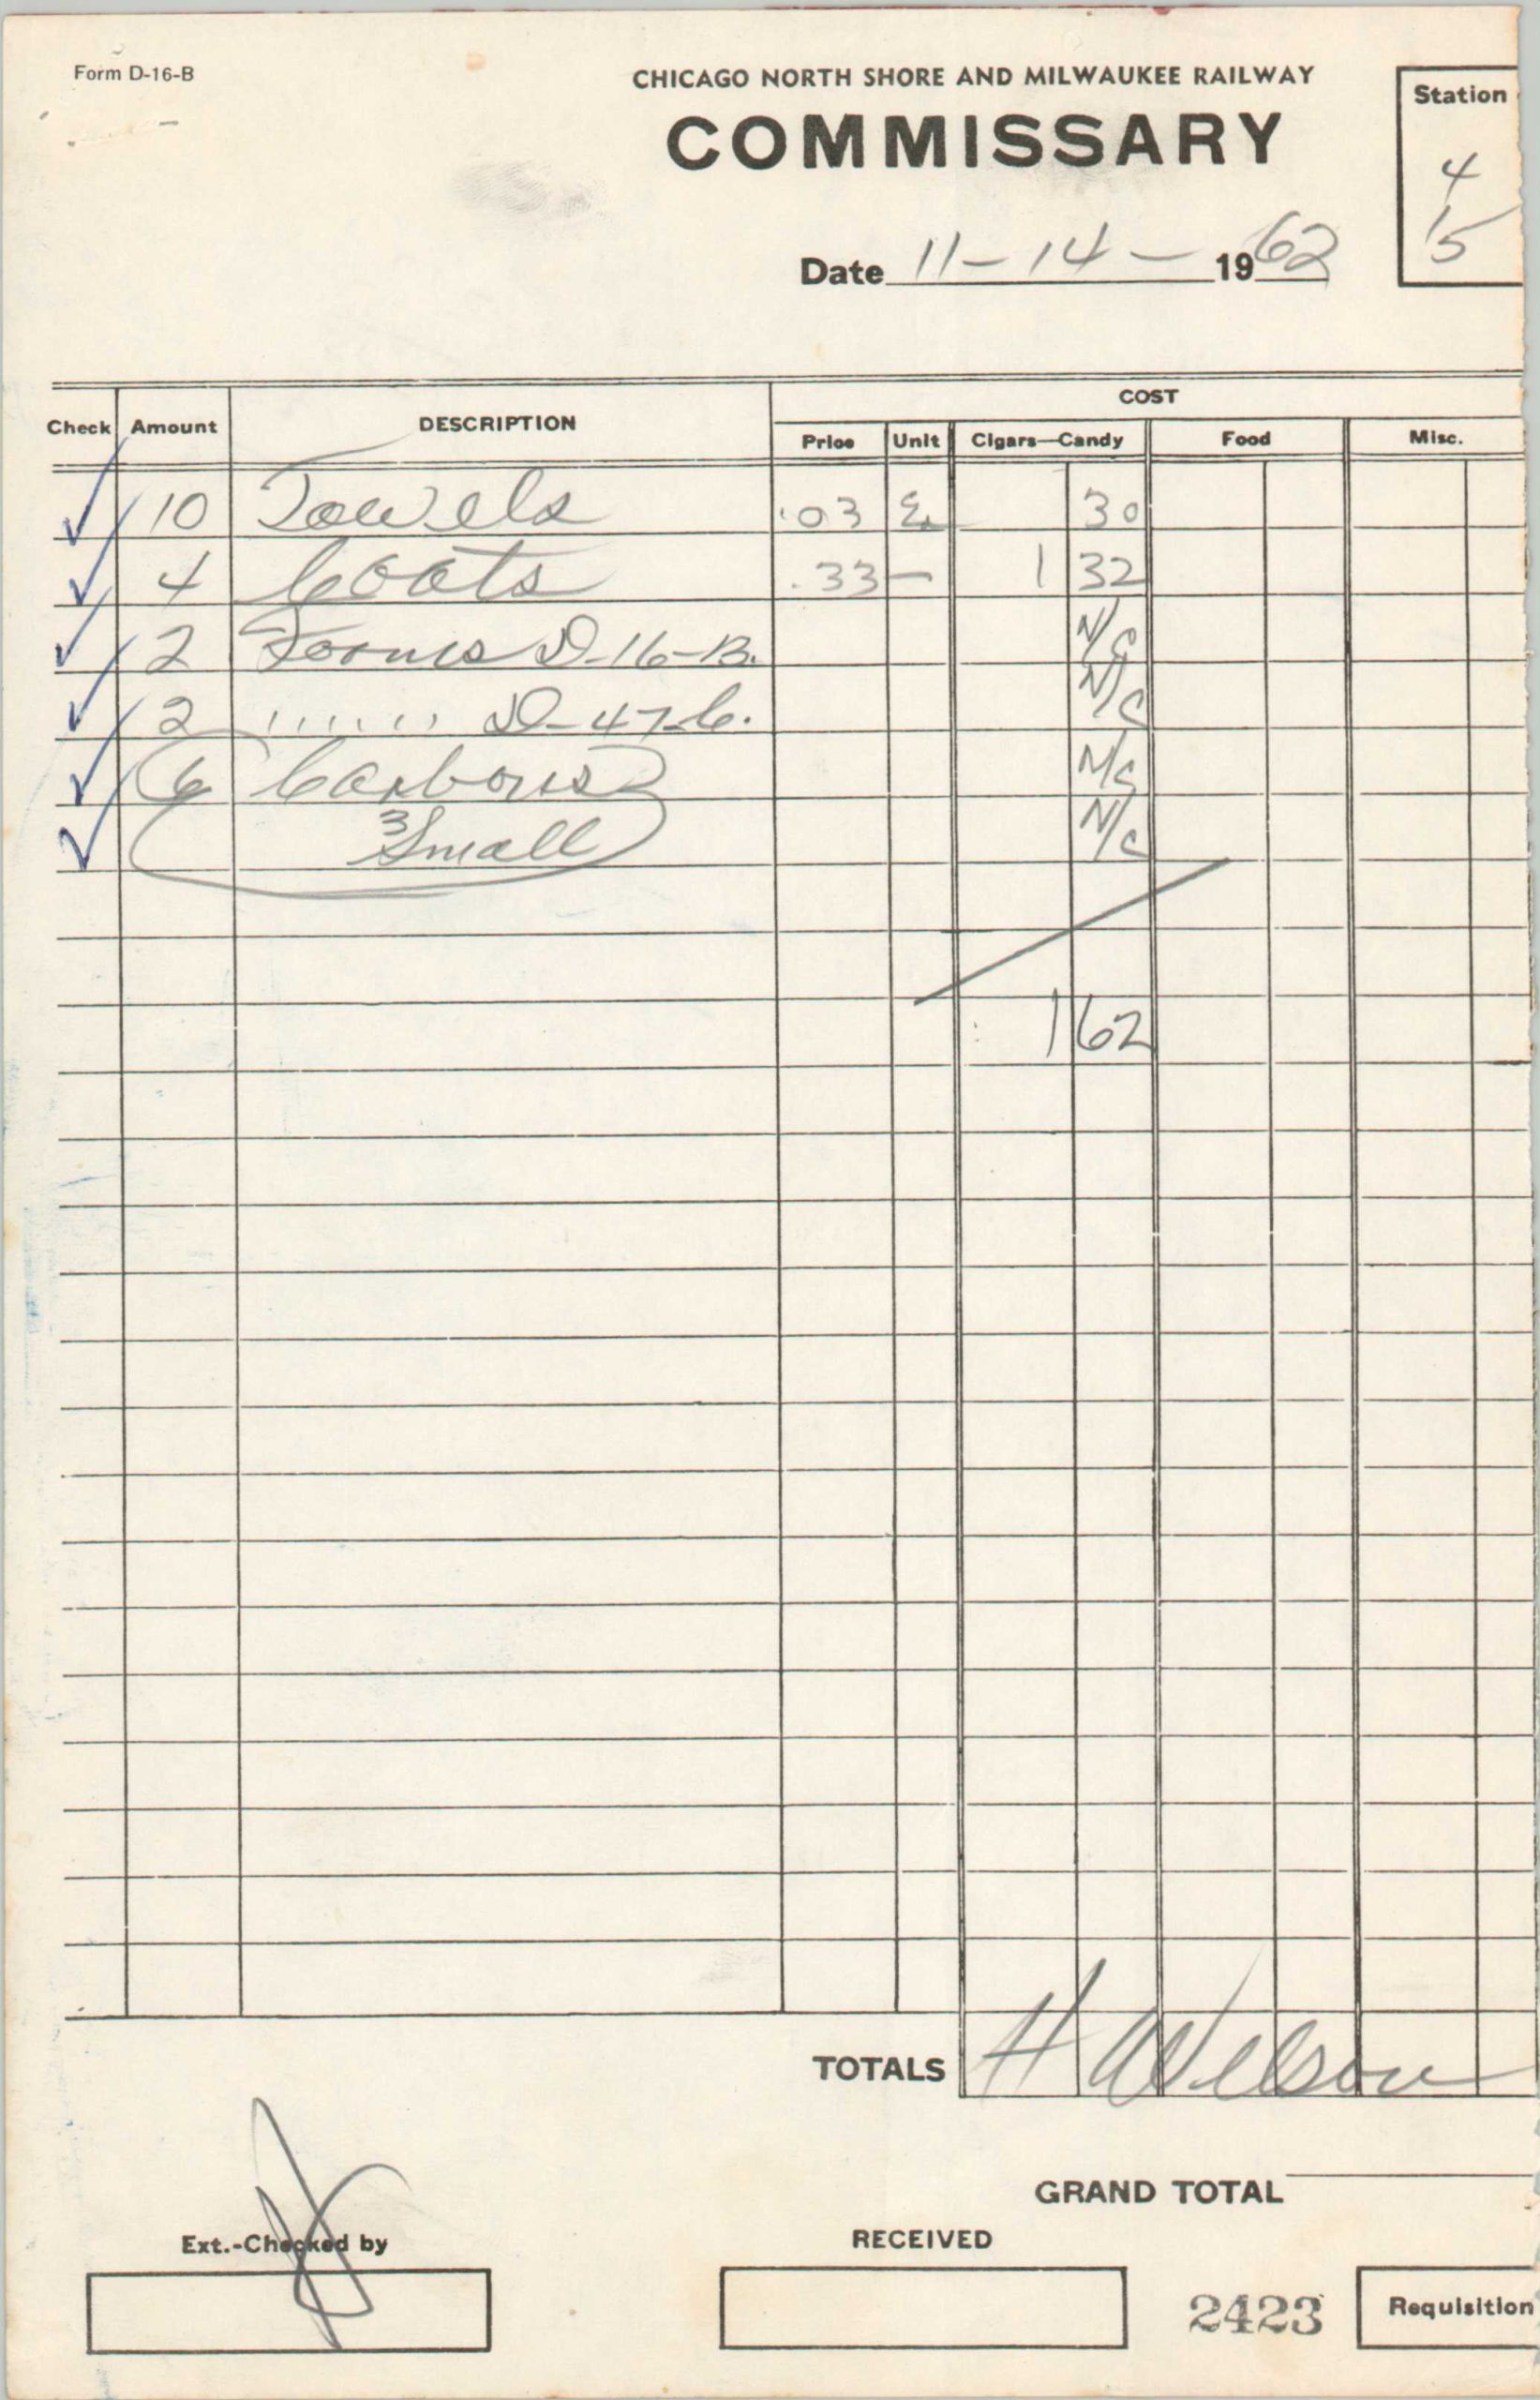 Form D-16-B
CHICAGO NORTH SHORE AND MILWAUKEE RAILWAY
COMMISSARY
Station
4
15
Date 11-14- 1962
COST
Check Amount DESCRIPTION Price Unit Cigars—Candy Food Misc.
✓ 10 Towels .03 Ea 30
✓ 4 Coats .33 — 1 32
✓ 2 Forms D-16-B. N/C
✓ 2 '' '' '' D-47-C. N/C
✓ 6 Carbons N/C
✓ 3 Small N/C
1 62
TOTALS H Wilson
GRAND TOTAL
Ext.-Checked by
RECEIVED
2423
Requisition